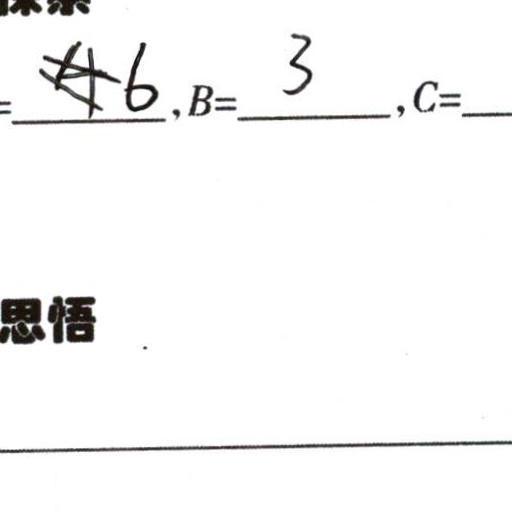 = 6 ,B= 3 ,C=
思悟